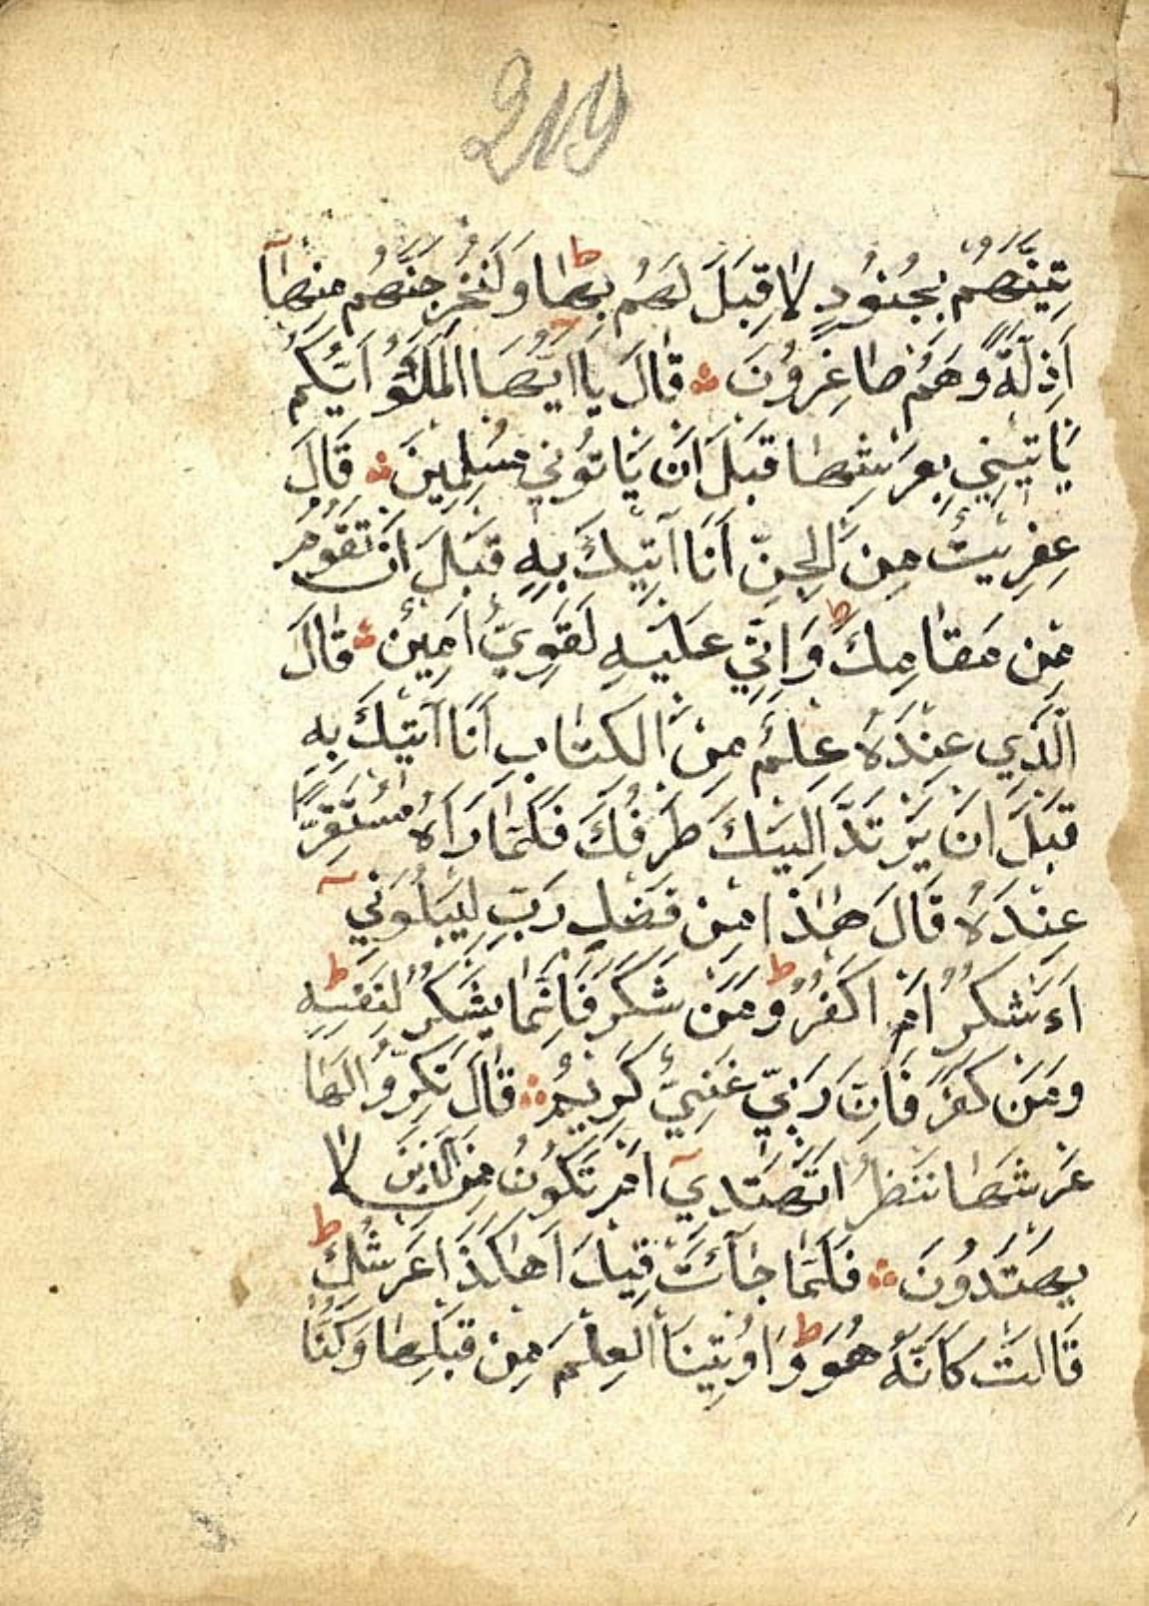 219
تِيَنَّهُمْ بِجُنُودٍ لَا قِبَلَ لَهُمْ بِهَا ط وَلَنُخْرِجَنَّهُمْ مِنْهَآ
اَذِلَّةً وَهُمْ صَاغِرُونَ ۞ قَالَ يَا اَيُّهَا الْمَلَؤُا اَيُّكُمْ
يَاْتِينِي بِعَرْشِهَا قَبْلَ اَنْ يَاْتُونِي مُسْلِمِينَ ۞ قَالَ
عِفْرِيتٌ مِنَ الْجِنِّ اَنَا آتِيكَ بِهِ قَبْلَ اَنْ تَقُومَ
مِنْ مَقَامِكَ ط وَاِنِّي عَلَيْهِ لَقَوِيٌّ اَمِينٌ ۞ قَالَ
الَّذِي عِنْدَهُ عِلْمٌ مِنَ الْكِتَابِ اَنَا آتِيكَ بِهِ
قَبْلَ اَنْ يَرْتَدَّ اِلَيْكَ طَرْفُكَ فَلَمَّا رَاٰهُ مُسْتَقِرًّا
عِنْدَهُ قَالَ هٰذَا مِنْ فَضْلِ رَبِّ لِيَبْلُوَنِيٓ
اَءَشْكُرُ اَمْ اَكْفُرُ ط وَمَنْ شَكَرَ فَاِنَّمَا يَشْكُرُ لِنَفْسِهِ ط
وَمَنْ كَفَرَ فَاِنَّ رَبِّي غَنِيٌّ كَرِيمٌ ۞ قَالَ نَكِّرُوا لَهَا
عَرْشَهَا نَنْظُرْ اَتَهْتَدِيٓ اَمْ تَكُونُ مِنَ الَّذِينَ لَا
يَهْتَدُونَ ۞ فَلَمَّا جَآئَتْ قِيلَ اَهٰكَذَا عَرْشُكِ ط
قَالَتْ كَاَنَّهُ هُوَ ط وَاُوتِينَا الْعِلْمَ مِنْ قَبْلِهَا وَكُنَّا